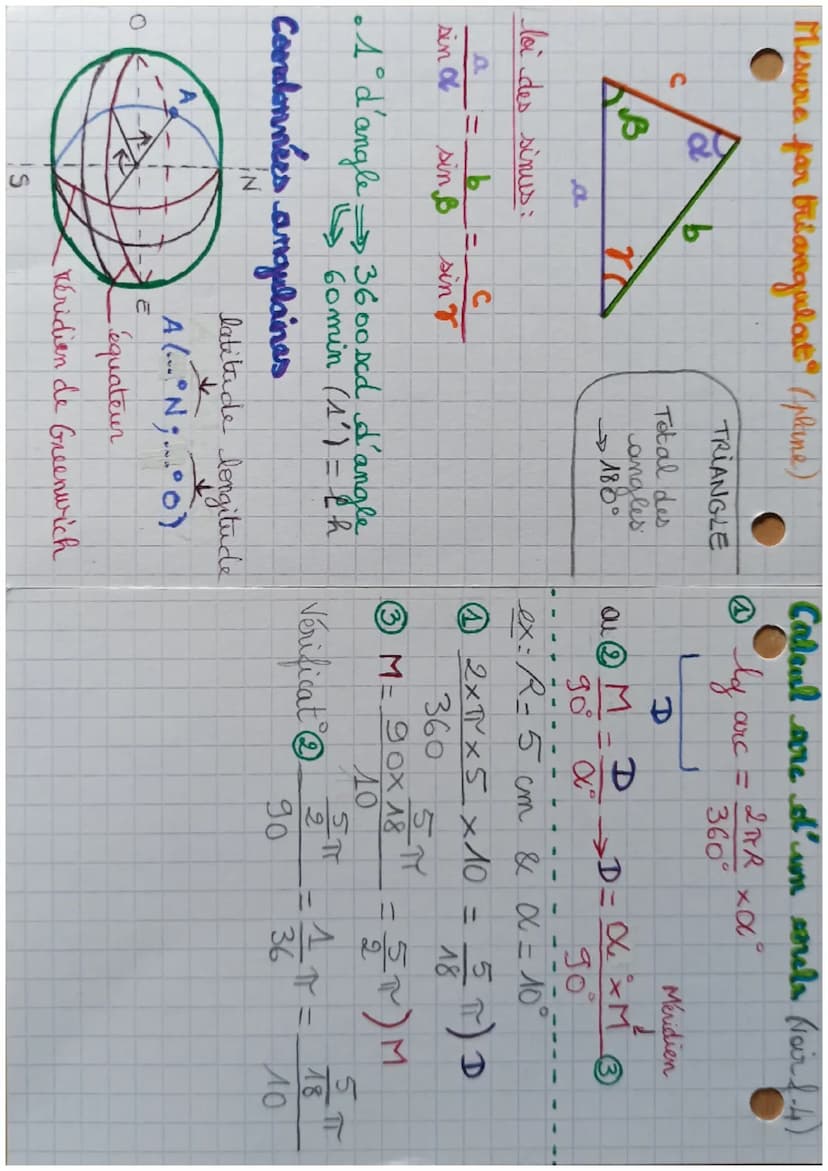 Mesure par triangulat° (plane)
c
α
b
β
γ
a
TRIANGLE
Total des
angles
→ 180°
loi des sinus :
a/sin α = b/sin β = c/sin γ
. 1° d'angle ⇒ 3600 scd d'angle
⇒ 60 min (1') = 1 h
Coordonnées angulaires
N
A
O
E
S
latitude longitude
A (...°N ; ...°O)
équateur
Méridien de Greenwich
Calcul arc d'un cercle (voir f.4)
① lg arc = 2πR/360° × α°
D
Méridien
ou ② M/90° = D/α° → D = α° × M/90° ③
ex : R = 5 cm & α = 10°
① 2×π×5/360 × 10 = 5/18 π) D
③ M = 90 × 5/18 π/10 = 5/2 π) M
Vérificat° ② 5/2 π/90 = 1/36 π = 5/18 π/10